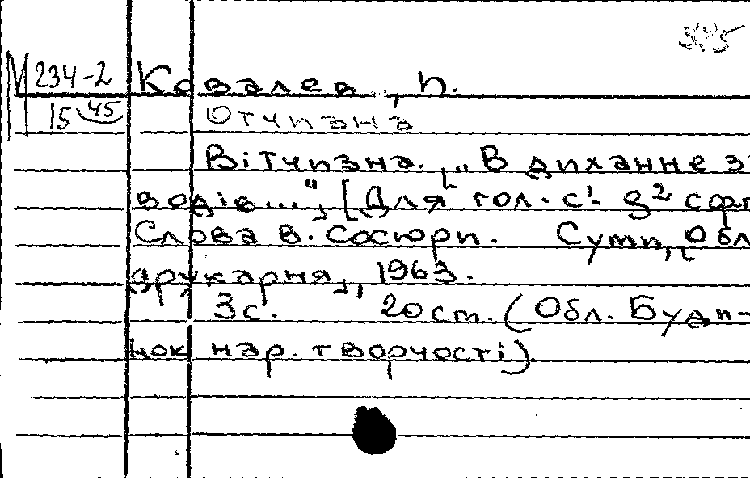 345
М 234-2 Ковалев, П.
15 45 Отчизна
Вітчизна. ["В диханне з
водів..."], [Для гол. с¹- g² сфп
Слова В. Сосюри. Суми, [Обл
друкарня], 1963.
3с. 20 см. (Обл. Буди-
нок нар. творчості).